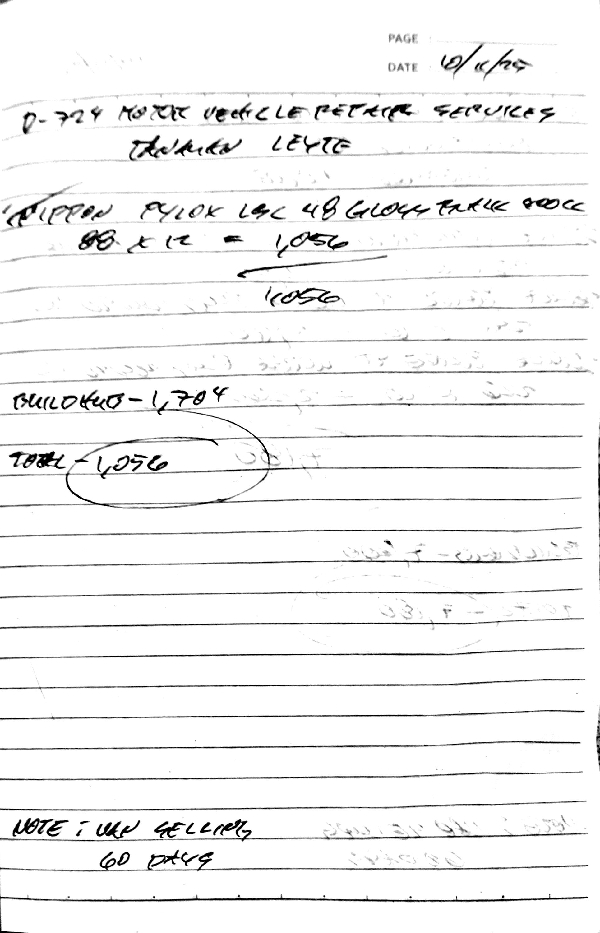 PAGE
DATE 10/11/25
D-724 MOTOR VEHICLE REPAIR SERVICES
TANAUAN LEYTE
NIPPON PYLOX LAC 48 GLOSS BLACK 400CC
88 X 12 = 1,056
1,056
BUILDHUB - 1,704
TOTAL - 1,056
NOTE : VAN SELLING
60 DAYS